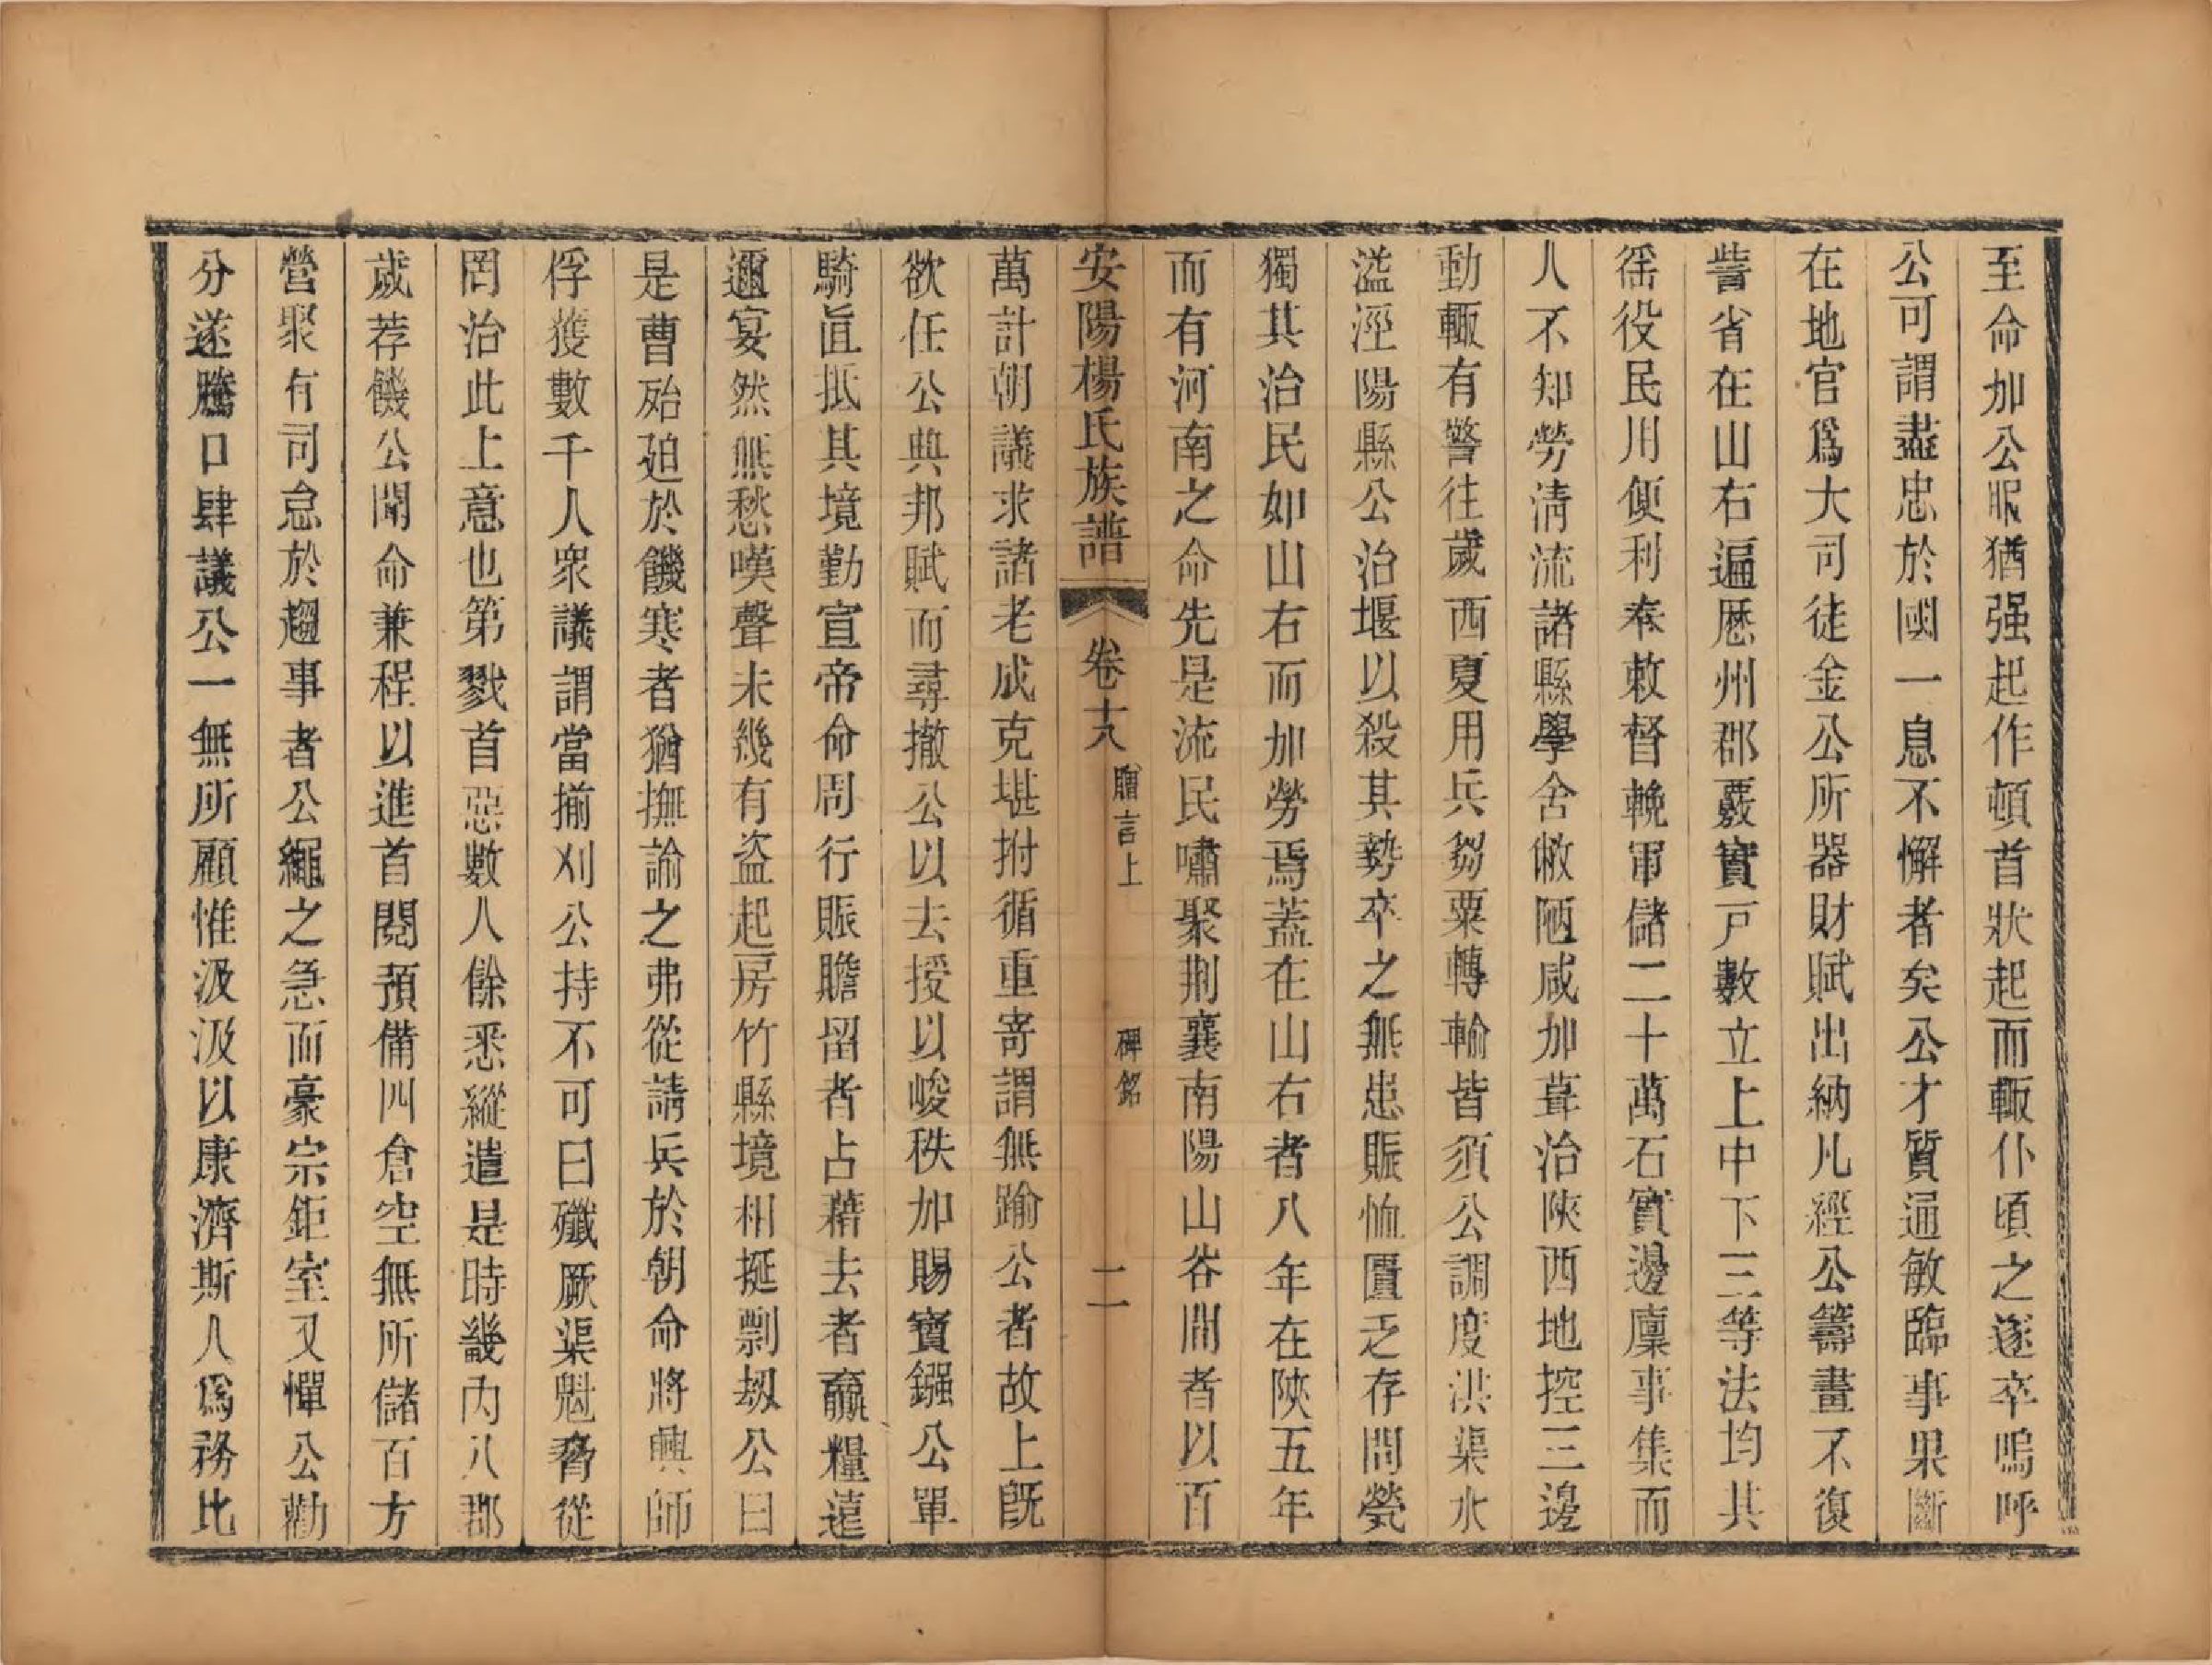 至命加公眠猶强起作頓首狀起而輙仆頃之遂卒嗚呼
公可謂盡忠於國一息不懈者矣公才質通敏臨事果斷
在地官爲大司徒金公所器財賦出納凡經公籌畫不復
訾省在山右遍歷州郡覈實戸數立上中下三等法均其
徭役民用便利奉敕督輓軍儲二十萬石實邊廪事集而
人不知勞淸流諸縣學舍敝陋咸加葺治陜西地控三邊
動輙有警往歲西夏用兵芻粟轉輸皆須公調度洪渠水
溢涇陽縣公治堰以殺其勢卒之無患賑恤匱乏存問㷀
獨其治民如山右而加勞焉蓋在山右者八年在陜五年
而有河南之命先是流民嘯聚荆襄南陽山谷間者以百
安陽楊氏族譜 卷十八 贈言上 碑銘 二
萬計朝議求諸老成克堪拊循重寄謂無踰公者故上旣
欲任公典邦賦而尋撤公以去授以峻秩加賜寶鏹公單
騎直抵其境勤宣帝命周行賑贍留者占藉去者齎糧遠
邇宴然無愁嘆聲未幾有盗起房竹縣境相挻剽刼公曰
是曹殆廹於饑寒者猶撫諭之弗從請兵於朝命將興師
俘獲數千人衆議謂當揃刈公持不可曰殲厥渠魁脅從
罔治此上意也第戮首惡數人餘悉縱遣是時畿内八郡
歲荐饑公聞命兼程以進首閱預備四倉空無所儲百方
營聚有司怠於趨事者公繩之急而豪宗鉅室又憚公勸
分遂騰口肆議公一無所顧惟汲汲以康濟斯人爲務比